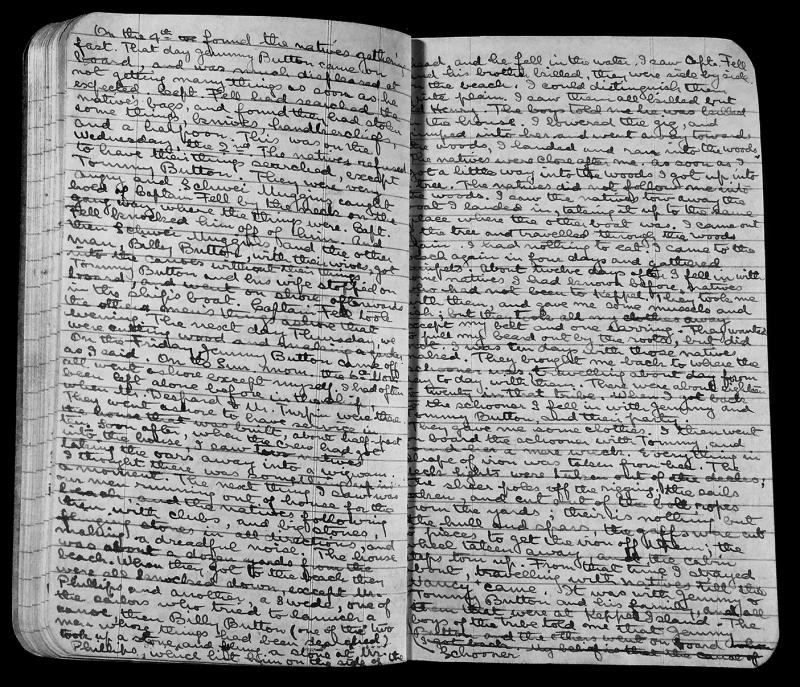 On the 4th found the natives gathering
fast. That day Jemmy Button came on
board, and was much displeased at
not getting many things as soon as he
expected. Capt. Fell had searched the
natives bags, and found they had stolen
some things, knives, handkerchiefs
and a harpoon. This was on the
Wednesday, the 2nd. The natives refused
to have their things searched, except
Tommy Button. They were very
angry and Schwei Muggins caught
hold of Captain Fell by the neck on the
gang way where the things were. Capt.
Fell knocked him off of him. And
then Schwei Muggins and the other
man, Billy Button, with their wives, got
into the canoes without their things
Tommy Button and his wife stopped on
board, and went on shore afterwards
in the ship's boat. Captain Fell took
the men's things ashore that
evening. The next day, Thursday, we
were cutting wood and making a garden
On the Friday, Jemmy Button came off
as I said. On the Sun. morn. the 6th Nov.
all went ashore except myself. I had often
been left alone before in the ship
when Mr. Despard & Mr. Turpin were there
They went ashore to have service in
the house that was built, about half-past
ten. Soon after, when the crew had got
into the house, I saw two natives
taking the oars away into a wigwam
I thought there was something up in
a moment. The next thing I saw was
our men running out of house for the
beach and the natives following
them with clubs, and big stones,
flinging stones in all directions, and
making a dreadful noise. The house
was about a dozen yards from the
beach. When they got to the beach they
were all knocked down, except Mr.
Phillips and another, a Swede, one of
the sailors who tried to launch a
canoe when Billy Button (one of the two
men whose things had been searched)
took up a stone and flung a stone at Mr.
Phillips, which hit him on the side of the
head, and he fell in the water. I saw Capt. Fell
and his brother killed, they were side by side
the beach. I could distinguish them
quite plain. I saw them all killed but
Hen. The boy told me he was killed
the house. I lowered the gig, and
jumped into her and went away towards
the woods, I landed and ran into the woods
The natives were close after me. as soon as I
got a little way into the woods I got up into
tree. The natives did not follow me into
the woods. I saw the natives tow away the
boat I landed in, taking it up to the same
place where the other boat was. I came out
the tree and travelled through the woods
again. I had nothing to eat. I came to the
beach again in four days and gathered
limpets. About twelve days after I fell in with
natives I had known before, natives
who had not been to Keppel. They took me
with them, and gave me some mussels and
fish; but they took all my clothes away
except my belt and one earring. They wanted
to pull my beard out by the roots, but did
not. I was ten days with those natives
. They brought me back to where the
schooner was, travelling about day from
day to day, with them. There were about eighteen
or twenty in that tribe. When I got back
to the schooner I fell in with Jemmy and
Tommy Button, and the rest.
They gave me some clothes. I then went
on board the schooner with Tommy, and
found her a mere wreck. Everything in
shape of iron was taken from her. The
deck lights were taken out of the decks;
the sheer poles off the rigging, the sails
stolen, and cut all of the bolt ropes
from the yards. There is nothing but
the hull and spars. the gaffs were cut
pieces to get the iron off them; the
wheel taken away, and the cabin
steps torn up. From that time I stayed
about, travelling with natives till the
Nancy came. It was with Jemmy &
Tommy Button and his family, and all
them that were at Keppel Island. The
boys of the tribe told me that Jemmy
Button and the others went on board
My belief is that the cause of
Schooner